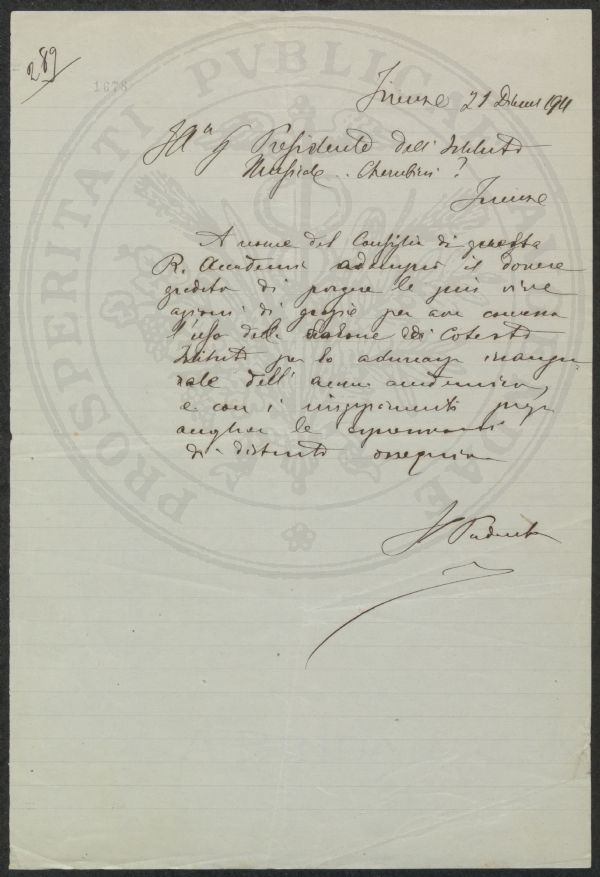 289
1678
Firenze 21 Dicem 1911
Ill.mo Sg Presidente dell'Istituto
Musicale "Cherubini"
Firenze
A nome del Consiglio di questa
R. Accademia adempio il dovere
gradito di porgere le più vive
azioni di grazie per aver concesso
l'uso della salone di Cotesto
Istituto per la adunanza inaugu
rale dell'anno accademico,
e con i ringraziamenti prego
accogliere le espressioni
di distinto ossequio
Il Presidente
PROSPERITATI PVBLICAE AVGENDAE